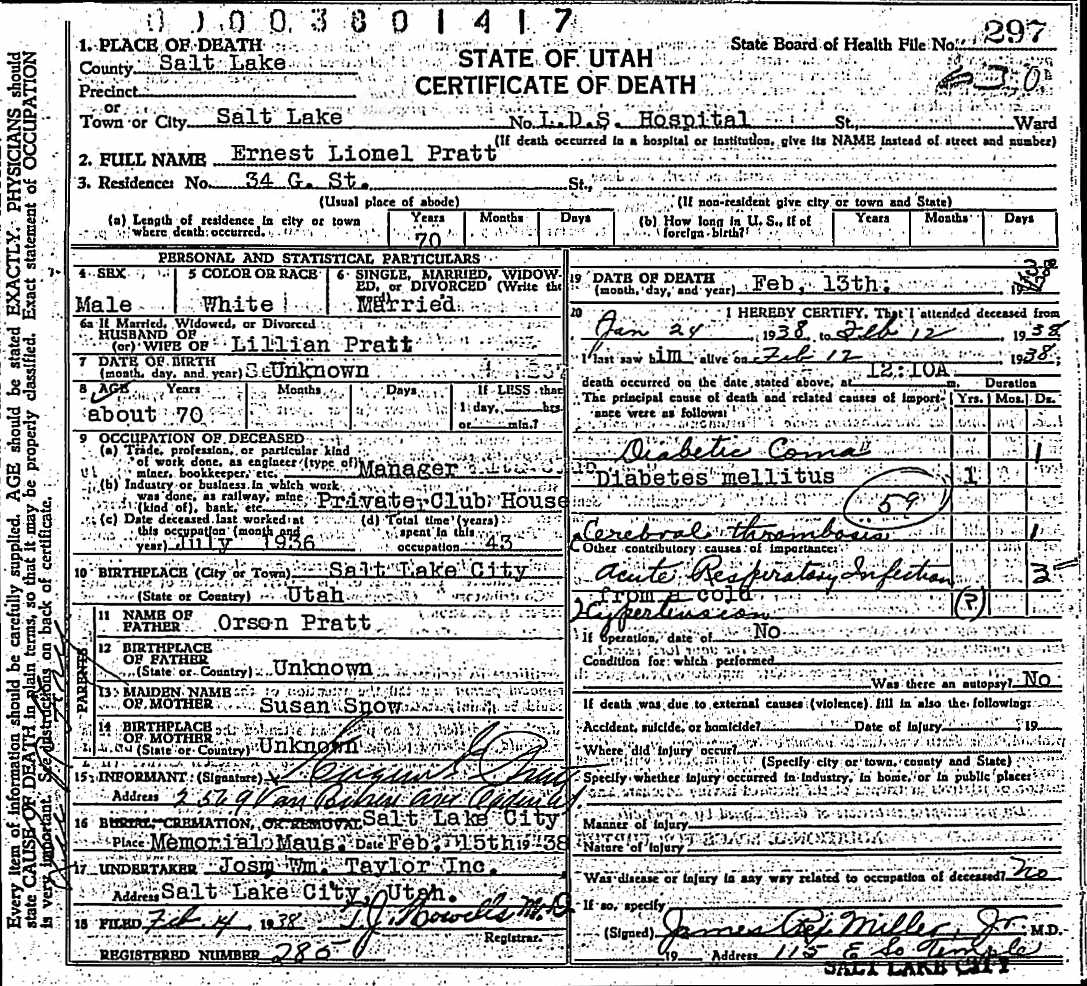 01003801417
1. PLACE OF DEATH
STATE OF UTAH
CERTIFICATE OF DEATH
State Board of Health File No. 297
30
County Salt Lake
Precinct
or
Town or City Salt Lake No. L.D.S. Hospital St. Ward
(If death occurred in a hospital or institution, give its NAME instead of street and number)
2. FULL NAME Ernest Lionel Pratt
3. Residence: No. 34 G. St. St.,
(Usual place of abode) (If non-resident give city or town and State)
(a) Length of residence in city or town where death occurred. Years 70 Months Days
(b) How long in U. S., if of foreign birth? Years Months Days
PERSONAL AND STATISTICAL PARTICULARS
4 SEX Male
5 COLOR OR RACE White
6 SINGLE, MARRIED, WIDOWED, or DIVORCED (Write the Married
6a If Married, Widowed, or Divorced
HUSBAND OF
(or) WIFE OF Lillian Pratt
7 DATE OF BIRTH
(month, day, and year) Unknown
8 AGE Years Months Days If LESS than
about 70 1 day, hrs
or min.?
9 OCCUPATION OF DECEASED
(a) Trade, profession, or particular kind
of work done, as engineer (type of)
miner, bookkeeper, etc. Manager
(b) Industry or business in which work
was done, as railway, mine
(kind of), bank, etc. Private Club House
(c) Date deceased last worked at
this occupation (month and
year) July 1936
(d) Total time (years)
spent in this
occupation 43
10 BIRTHPLACE (City or Town) Salt Lake City
(State or Country) Utah
PARENTS
11 NAME OF
FATHER Orson Pratt
12 BIRTHPLACE
OF FATHER
(State or Country) Unknown
13 MAIDEN NAME
OF MOTHER Susan Snow
14 BIRTHPLACE
OF MOTHER
(State or Country) Unknown
15 INFORMANT (Signature)
Address 2569 Van Buren Ave Ogden
16 BURIAL, CREMATION, OR REMOVAL Salt Lake City
Place Memorial Maus. Date Feb. 15th 1938
17 UNDERTAKER Jos. Wm. Taylor Inc.
Address Salt Lake City, Utah.
18 FILED Feb. 14 1938 T. J. Howells M.D.
Registrar.
REGISTERED NUMBER 285
19 DATE OF DEATH
(month, day, and year) Feb, 13th. 19
20 I HEREBY CERTIFY, That I attended deceased from
Jan 24 1938 to Feb 12 1938
I last saw him alive on Feb 12 1938
death occurred on the date stated above, at 12:10A m.
Duration
The principal cause of death and related causes of importance were as follows: Yrs. Mos. Ds.
Diabetic Coma 1
Diabetes mellitus 1
59
Cerebral thrombosis 1
Other contributory causes of importance:
Acute Respiratory Infection 3
from a cold
Hypertension (?)
If operation, date of No
Condition for which performed
Was there an autopsy? No
If death was due to external causes (violence) fill in also the following:
Accident, suicide, or homicide? Date of injury 19
Where did injury occur?
(Specify city or town, county and State)
Specify whether injury occurred in industry, in home, or in public place:
Manner of injury
Nature of injury
Was disease or injury in any way related to occupation of deceased? No
If so, specify
(Signed) James Miller, Jr. M.D.
19 Address 115 E So Temple
SALT LAKE CITY
Every item of information should be carefully supplied. AGE should be stated EXACTLY. PHYSICIANS should
state CAUSE OF DEATH in plain terms, so that it may be properly classified. Exact statement of OCCUPATION
is very important. See instructions on back of certificate.